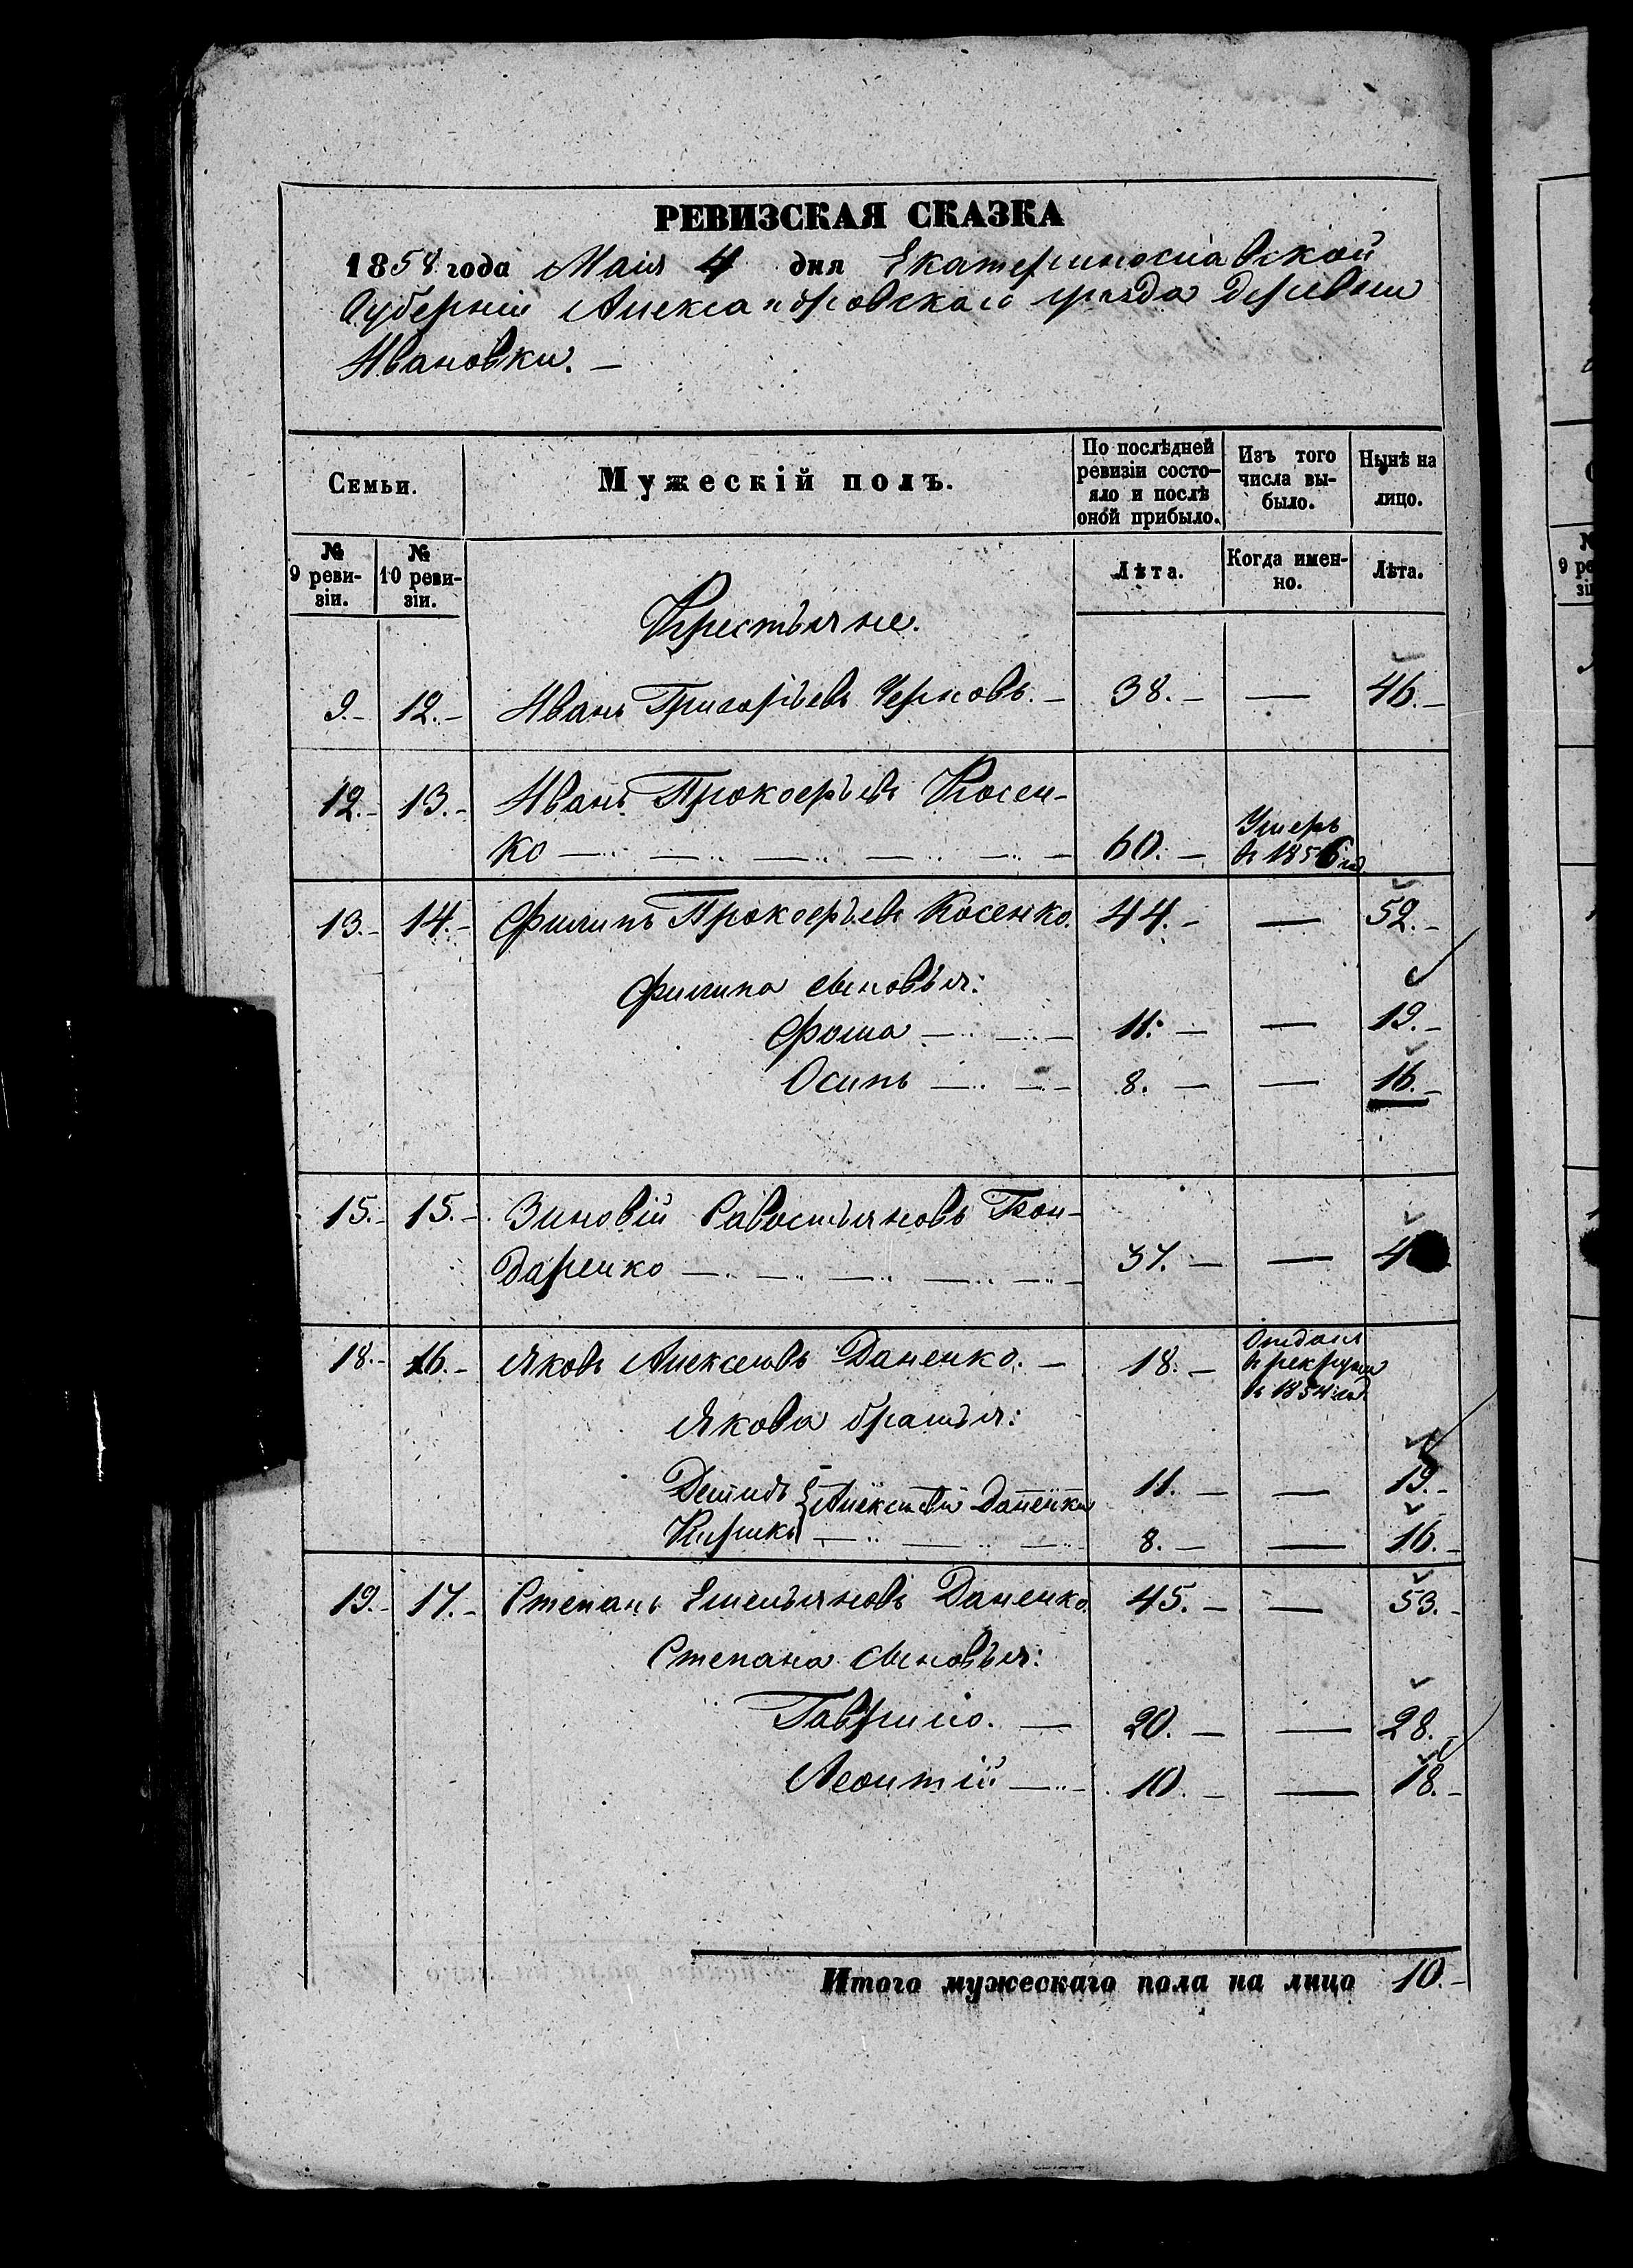 РЕВИЗСКАЯ СКАЗКА
1858 года Маія 4 дня Екатеринославской
Губерніи Александровскаго уѣзда деревни
Ивановки. —
Семьи.
Мужескій полъ.
По послѣдней ревизіи состояло и послѣ оной прибыло.
Изъ того числа выбыло.
Нынѣ на лицо.
№ 9 ревизіи.
№ 10 ревизіи.
Лѣта.
Когда именно.
Лѣта.
Крестьяне.
9.- 12.- Иванъ Григорьевъ Черновъ. — 38. — — 46. —
12.- 13.- Иванъ Прокофьевъ Косен-
ко — 60. — Умеръ в 1856 год.
13.- 14.- Филипъ Прокофьевъ Косенко. 44. — — 52. —
Филипа сыновья:
Фома — 11. — — 19. —
Осипъ — 8. — — 16. —
15.- 15.- Зиновій Савостьяновъ Бон-
даренко — 37. — — 4
18.- 16.- Яковъ Алексеевъ Даненко. — 18. — Отданъ в рекруты в 1854 год.
Якова братья:
Демидъ Алексеевы Даненки 11. — — 19. —
Кирикъ — 8. — — 16. —
19.- 17.- Степанъ Емельяновъ Даненко. 45. — — 53. —
Степана сыновья:
Гаврило. — 20. — — 28. —
Леонтій — 10. — — 18. —
Итого мужескаго пола на лицо 10. —
9 ре